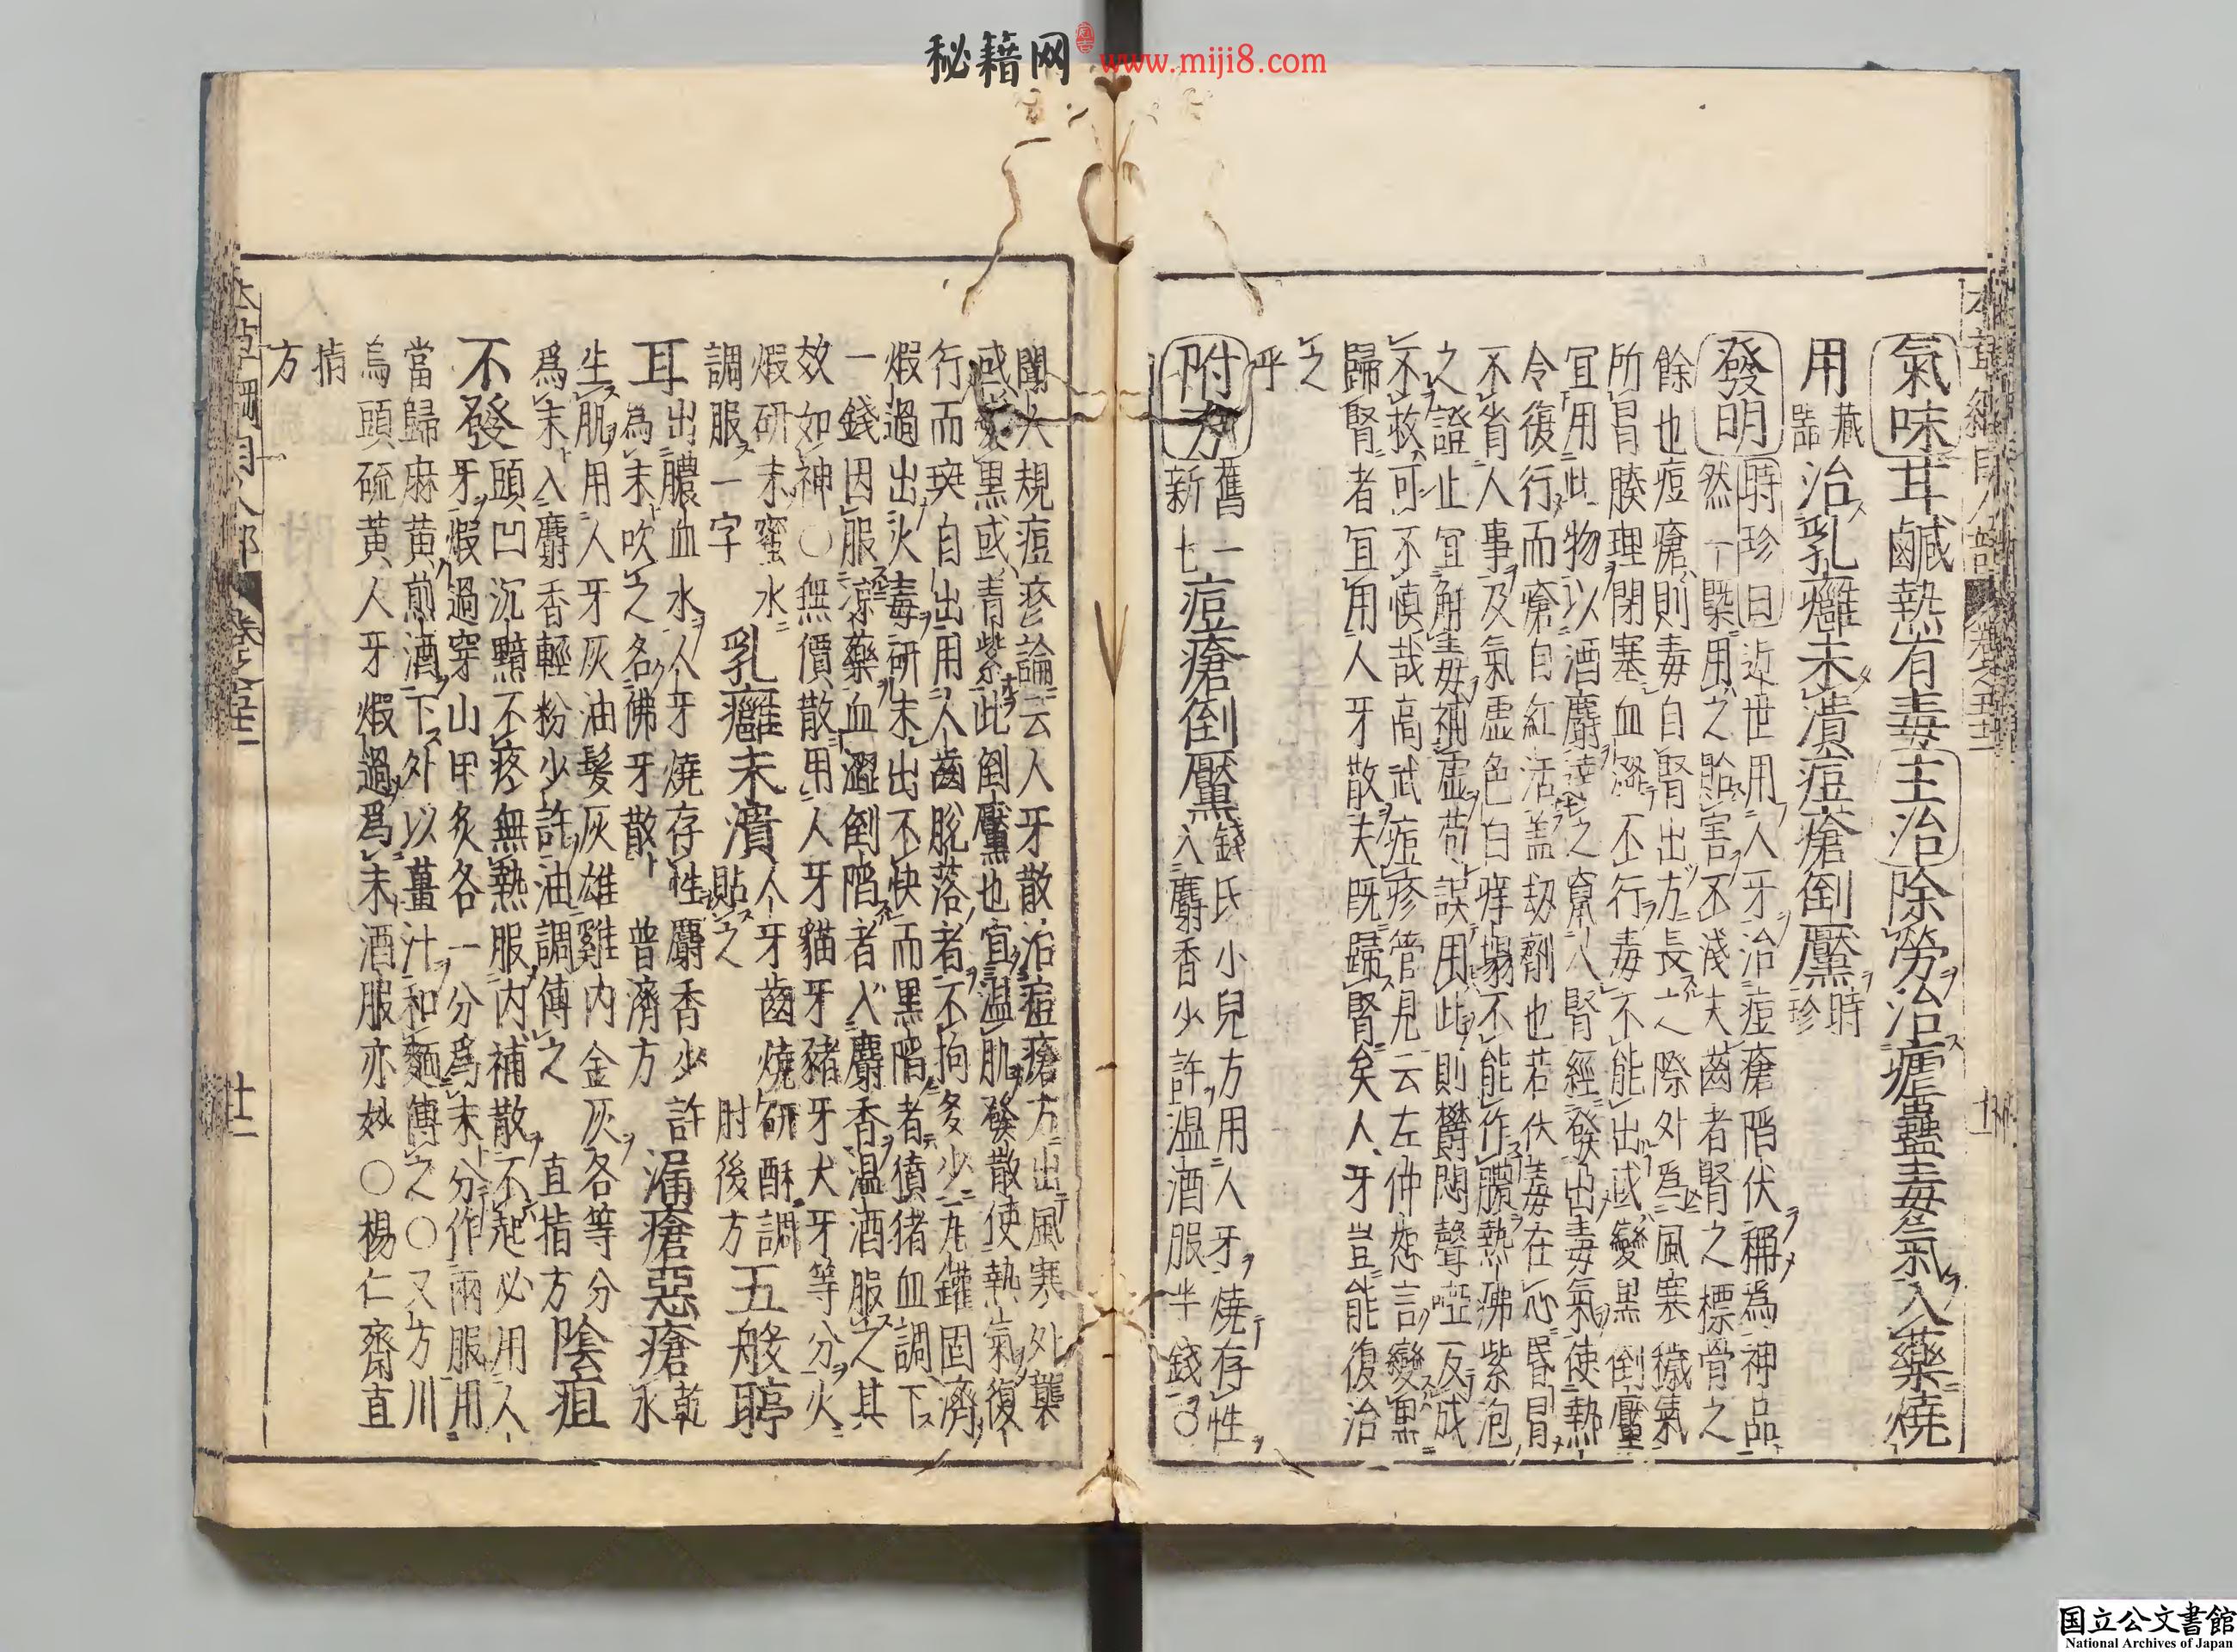 秘籍网 www.miji8.com
氣味甘鹹熱有毒主治除勞治瘧蠱毒氣入藥燒
用藏器治乳癰未潰痘瘡倒黶時珍
發明時珍曰近世用人牙治痘瘡陷伏稱為神品
然一槩用之貽害不淺夫齒者腎之標骨之
餘也痘瘡則毒自腎出方長之際外爲風寒穢氣
所冒腠理閉塞血澀不行毒不能出或變黑倒黶
宜用此物以酒麝達之竄入腎經發出毒氣使熱
令復行而瘡自紅活蓋劫劑也若伏毒在心昏冒
不省人事及氣虛色白痒塌不能作膿熱疿紫泡
之證止宜解毒補虛苟誤用此則鬱悶聲啞反成
不救可不慎哉高武痘疹管見云左仲恕言變黒
歸腎者宜用人牙散夫既歸腎矣人牙豈能復治
之
乎
附方舊一新七痘瘡倒黶錢氏小兒方用人牙燒存性
入麝香少許温酒服半錢〇
聞人規痘疹論云人牙散治痘瘡方出風寒外襲
或變黒或青紫此倒黶也宜温肌發散使熱氣復
行而斑自出用人齒脫落者不拘多少瓦鑵固濟
煆過出火毒研末出不快而黒陷者獖猪血調下
一錢因服凉藥血澀倒陷者入麝香温酒服之其
效如神〇無價散用人牙貓牙豬牙犬牙等分火
煆研末蜜水調服一字
乳癰未潰人牙齒燒研酥調貼之肘後方
五般聤耳出膿血水人牙燒存性麝香少許
為末吹之名佛牙散普濟方
漏瘡惡瘡乾水生肌用人牙灰油髮灰雄雞內金灰各等分
爲末入麝香輕粉少許油調傅之直指方
陰疽不發頭凹沉黯不疼無熱服內補散不起必用人
牙煆過穿山甲炙各一分爲末分作兩服用
當歸麻黃煎酒下外以薑汁和麵傅之〇又方川
烏頭硫黃人牙煆過爲末酒服亦妙〇楊仁齋直
指
方
国立公文書館
National Archives of Japan